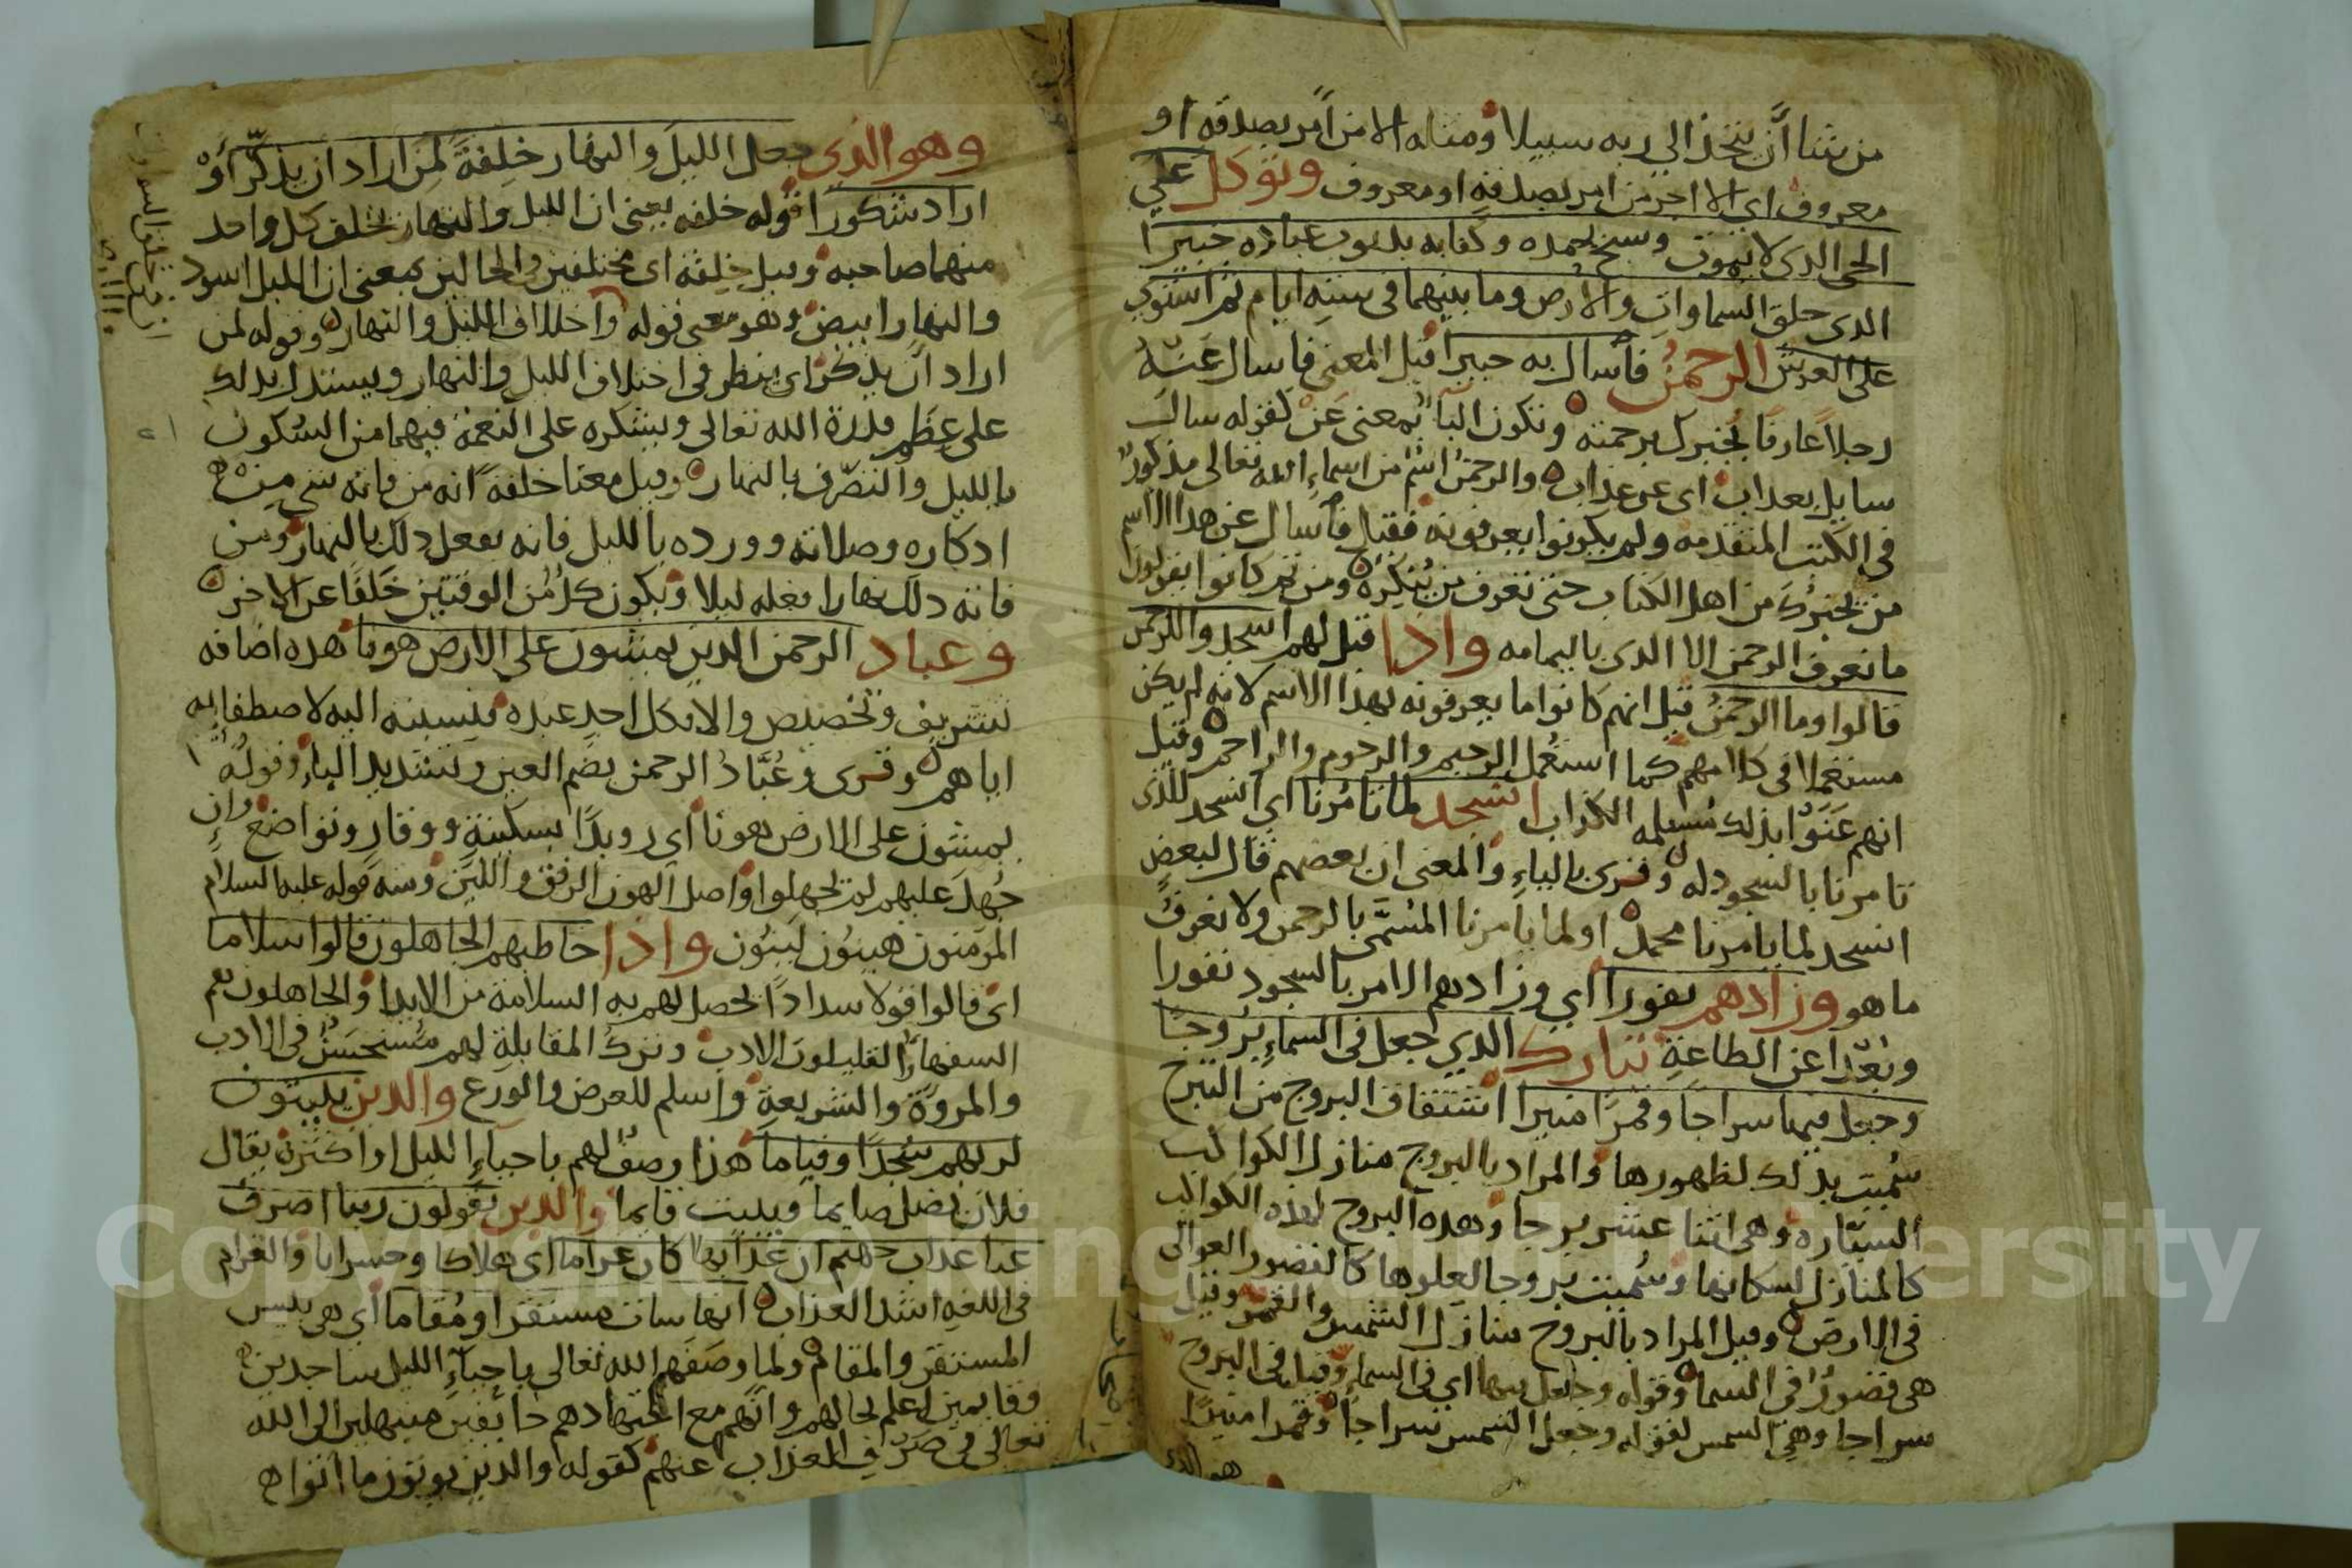 من شا أن يتخذ الي ربه سبيلا ومثاله الا من أمر بصدقه او
معروف اي الا اجر من امر بصدقه او معروف وتوكل علي
الحي الذي لا يموت وسبح بحمده وكفا به بذنوب عباده خبيرا
الذي خلق السماوات والارض وما بينهما في ستة ايام ثم استوي
على العرش الرحمن فأسال به خبيرا قيل المعنى فاسال عنه
رجلا عارفا يخبرك برحمته وتكون البا بمعنى عن كقوله سال
سايل بعذاب اى عن عذاب والرحمن اسم من اسماء الله تعالى مذكور
في الكتب المتقدمه ولم يكونوا يعرفونه فقيل فأسال عن هذا الاسم
من يخبرك من اهل الكتاب حتى تعرف من ينكره ومن ثم كانوا يقولون
ما نعرف الرحمن الا الذي باليمامه واذا قيل لهم اسجدوا للرحمن
قالوا وما الرحمن قيل انهم كانوا ما يعرفونه بهذا الاسم لانه لم يكن
مستعملا في كلامهم كما استعمل الرحيم والرحوم والراحم وقيل
انهم عنوا بذلك مسيلمه الكذاب انسجد لما تامرنا اي انسجد للذي
تامرنا بالسجود له وقرى بالياء والمعنى ان بعضهم قال لبعض
انسجد لما يامرنا محمد او لما يامرنا المسمى بالرحمن ولا نعرف
ما هو وزادهم نفورا اي وزادهم الامر بالسجود نفورا
وبعدا عن الطاعة تبارك الذي جعل في السماء بروجا
وجعل فيها سراجا وقمرا منيرا اشتقاق البروج من التبرج
سميت بذلك لظهورها والمراد بالبروج منازل الكواكب
السياره وهي اثنا عشر برجا وهده البروج لهذه الكواكب
كالمنازل لسكانها وسميت بروجا لعلوها كالقصور العوالى
في الارض وقيل المراد بالبروج منازل الشمس والقمر وقيل
هى قصور في السما وقوله وجعل فيها اي في السماء وقيل في البروج
سراجا وهي الشمس لقوله وجعل الشمس سراجا وقمرا منيرا
وهو الذي جعل الليل والنهار خلفة لمن اراد ان يذكر أو
اراد شكورا قوله خلفه يعنى ان الليل والنهار يخلف كل واحد
منهما صاحبه وقيل خلفة اى مختلفين والحالين بمعنى ان الليل اسود
والنهار ابيض وهو معنى قوله واختلاف الليل والنهار وقوله لمن
اراد أن يذكر اى ينظر في اختلاف الليل والنهار ويستدل بذلك
على عظم قدرة الله تعالى ويشكره على النعمة فيهما من السكون
بالليل والتصرف بالنهار وقيل معنا خلفة انه من فاته شي من
اذكاره وصلاته وورده بالليل فانه يفعل ذلك بالنهار ومن
فاته ذلك نهارا فعله ليلا ويكون كل من الوقتين خلفا عن الاخر
وعباد الرحمن الذين يمشون على الارض هونا هذه اضافه
تشريف وتخصيص والا فكل احد عبده فنسبته اليه لاصطفايه
اياهم وقرى وعباد الرحمن بضم العين وتشديد الباء وقوله
يمشون على الارض هونا أي رويدا بسكينة ووقار وتواضع وان
جهل عليهم لم يجهلوا واصل الهون الرفق واللين ومنه قوله عليه السلام
المؤمنون هينون لينون واذا خاطبهم الجاهلون قالوا سلاما
اى قالوا قولا سدادا يحصل لهم به السلامة من الايدا والجاهلون هم
السفهاء القليلون الادب وترك المقابلة لهم مستحسن في الادب
والمروة والشريعة واسلم للعرض والورع والذين يبيتون
لربهم سجدا وقياما هذا وصف لهم باحياء الليل او اكثره يقال
فلان يضل صايما ويبيت قايما والذين يقولون ربنا اصرف
عنا عذاب جهنم ان عذابها كان غراما اى هلاكا وخسرانا والغرام
في اللغه اشد العذاب انها سات مستقرا ومقاما أي هى بئس
المستقر والمقام ولما وصفهم الله تعالى باحياء الليل ساجدين
وقايمين اعلم بحالهم وانهم مع اجتهادهم خايفين مبتهلين الى الله
تعالى في صرف العذاب عنهم كقوله والذين يوتون ما اتوا